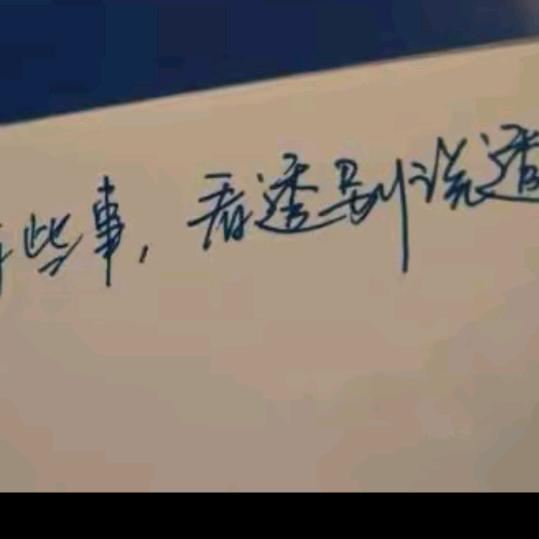 些事，看透别说透